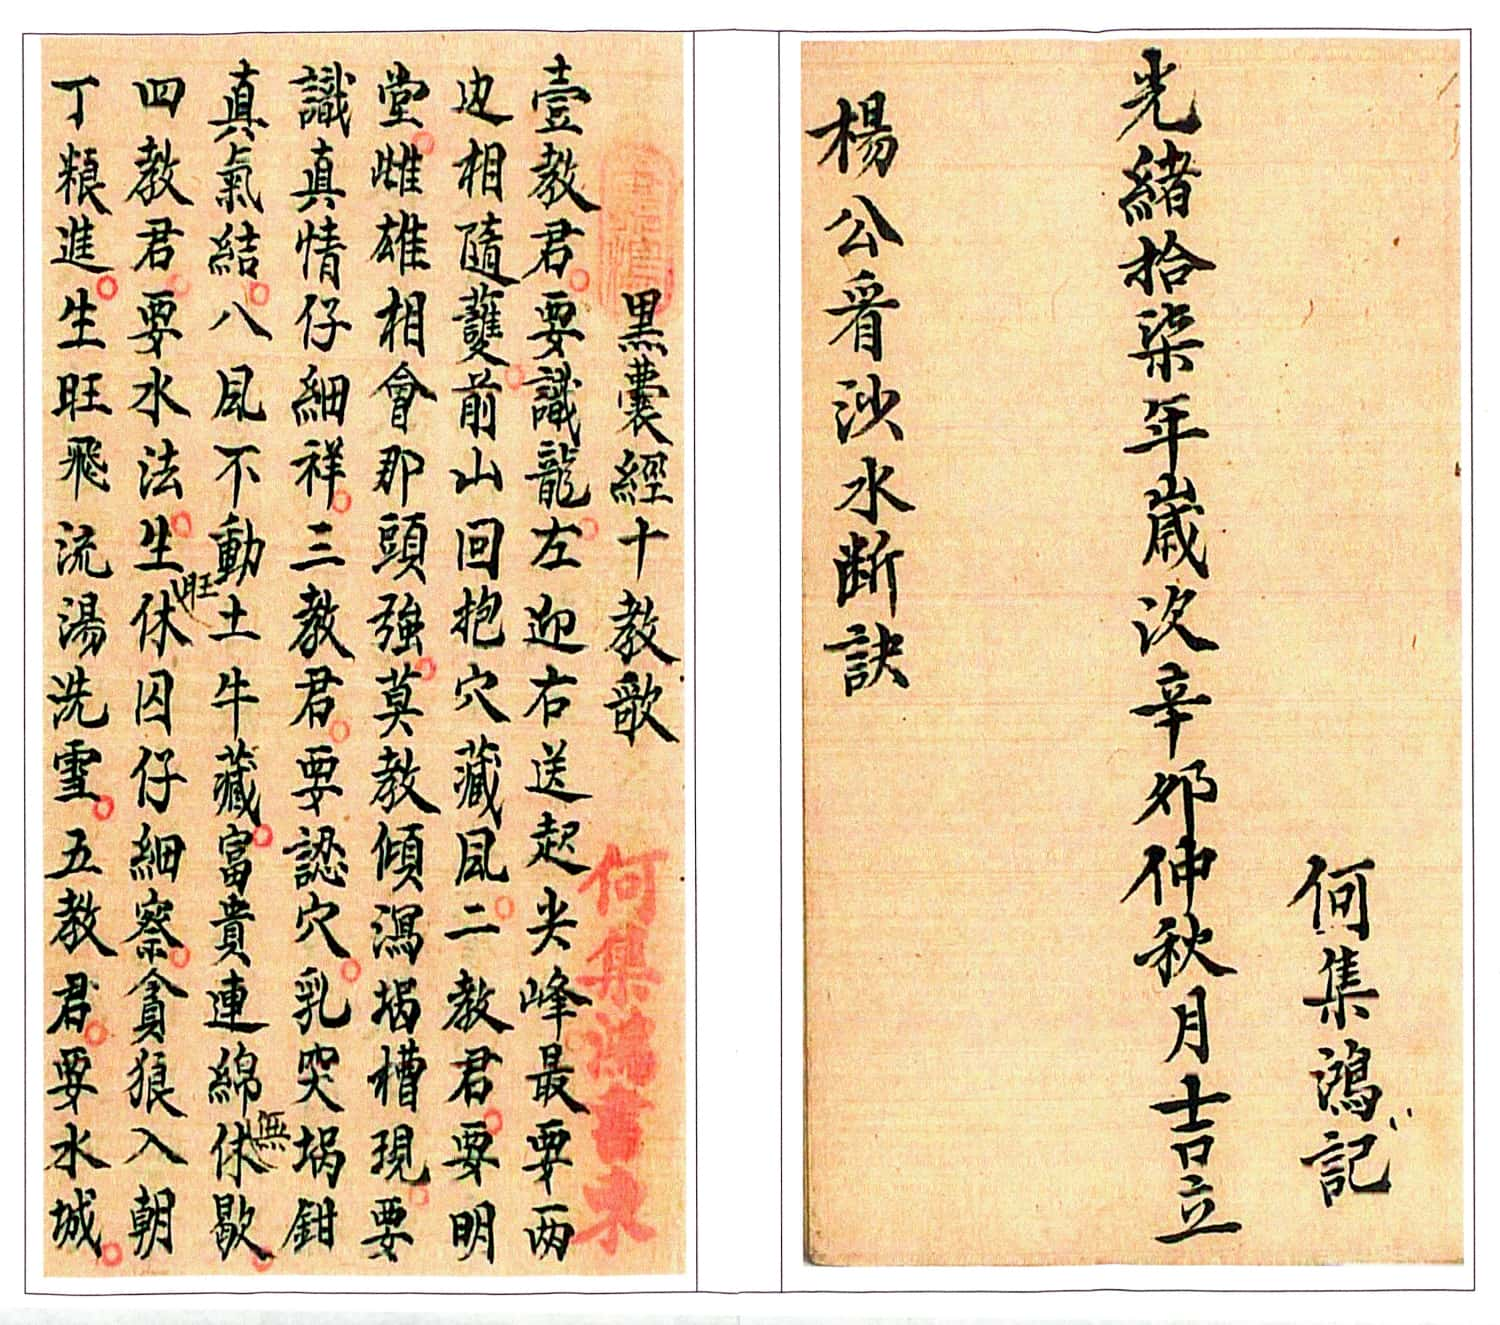 何集鴻記
光緒拾柒年歲次辛卯仲秋月吉立
楊公看沙水断訣
黑囊經十教歌
何集鴻書柬
壹教君要識龍左迎右送起尖峰最要两
边相隨護前山回抱穴藏風二教君要明
堂雌雄相會那頭強莫教傾瀉堝槽現要
識真情仔細祥三教君要認穴乳突堝鉗
真氣結八風不動土牛藏富貴連綿休歇
無
四教君要水法生休囚仔細察貪狼入朝
旺
丁粮進生旺飛流湯洗雪五教君要水城